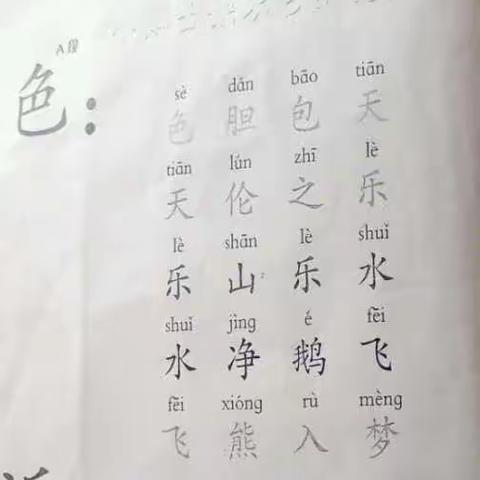 A段
色：
sè dǎn bāo tiān
色 胆 包 天
tiān lún zhī lè
天 伦 之 乐
lè shān lè shuǐ
乐 山 乐 水
shuǐ jìng é fēi
水 净 鹅 飞
fēi xióng rù mèng
飞 熊 入 梦